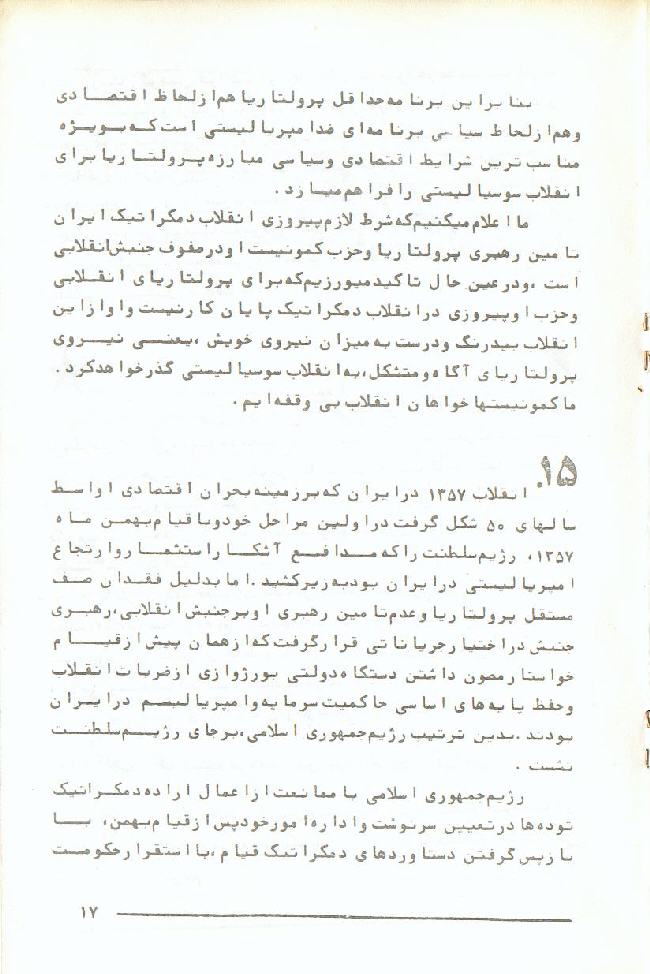 بنابراین برنامه حداقل پرولتاریا هم از لحاظ اقتصادی
و هم از لحاظ سیاسی برنامه‌ای ضد امپریالیستی است که بویژه
مناسب ترین شرایط اقتصادی و سیاسی مبارزه پرولتاریا برای
انقلاب سوسیالیستی را فراهم میسازد .
ما اعلام میکنیم که شرط لازم پیروزی انقلاب دمکراتیک ایران
تامین رهبری پرولتاریا و حزب کمونیست او در صفوف جنبش انقلابی
است ، و در عین حال تاکید میورزیم که برای پرولتاریای انقلابی
و حزب او پیروزی در انقلاب دمکراتیک پایان کار نیست و او از این
انقلاب بیدرنگ و درست به میزان نیروی خویش ، یعنی نیروی
پرولتاریای آگاه و متشکل ، به انقلاب سوسیالیستی گذر خواهد کرد .
ما کمونیستها خواهان انقلاب بی وقفه ایم .
۱۵. انقلاب ۱۳۵۷ در ایران که بر زمینه بحران اقتصادی اواسط
سالهای ۵۰ شکل گرفت در اولین مراحل خود و با قیام بهمن ماه
۱۳۵۷ ، رژیم سلطنت را که مدافع آشکار استثمار و ارتجاع
امپریالیستی در ایران بود به زیر کشید . اما بدلیل فقدان صف
مستقل پرولتاریا و عدم تامین رهبری او بر جنبش انقلابی ، رهبری
جنبش در اختیار جریاناتی قرار گرفت که از همان پیش از قیام
خواستار مصون داشتن دستگاه دولتی بورژوازی از ضربات انقلاب
و حفظ پایه‌های اساسی حاکمیت سرمایه و امپریالیسم در ایران
بودند . بدین ترتیب رژیم جمهوری اسلامی ، بر جای رژیم سلطنت
نشست .
رژیم جمهوری اسلامی با ممانعت از اعمال اراده دمکراتیک
توده‌ها در تعیین سرنوشت و اداره امور خود پس از قیام بهمن ، با
بازپس گرفتن دستاوردهای دمکراتیک قیام ، با استقرار حکومت
۱۷